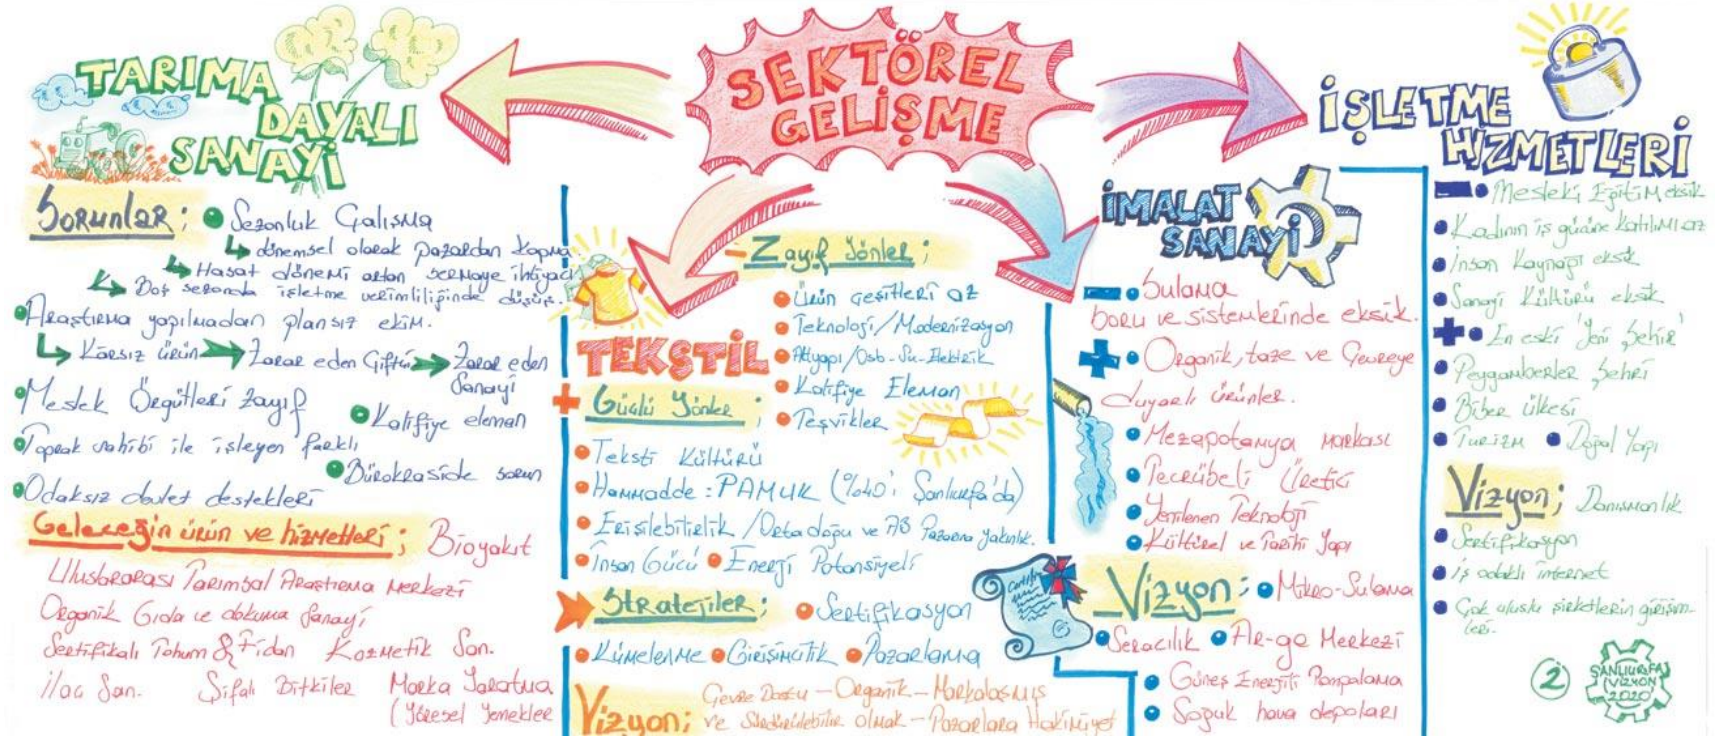 SEKTÖREL
GELİŞME
TARIMA
DAYALI
SANAYİ
Sorunlar;
Sezonluk Çalışma
dönemsel olarak pazardan kopma
Hasat dönemi artan sermaye ihtiyacı
Boş sezonda işletme verimliliğinde düşüş.
Araştırma yapılmadan plansız ekim.
Karsız ürün Zarar eden Çiftçi Zarar eden
Sanayi
Meslek Örgütleri zayıf
Kalifiye eleman
Toprak sahibi ile işleyen farklı
Bürokraside sorun
Odaksız devlet destekleri
Geleceğin ürün ve hizmetleri; Bioyakıt
Uluslararası Tarımsal Araştırma Merkezi
Organik Gıda ve dokuma Sanayi
Sertifikalı Tohum & Fidan Kozmetik San.
ilaç San. Şifalı Bitkiler Marka Yaratma
(Yöresel Yemekler
TEKSTİL
- Zayıf Yönler;
Ürün çeşitleri az
Teknoloji/Modernizasyon
Altyapı/Osb-Su-Elektirik
Kalifiye Eleman
Teşvikler
+ Güçlü Yönler;
Teksti Kültürü
Hammadde: PAMUK (%40'ı Şanlıurfa'da)
Erişilebilirlik / Orta doğu ve AB Pazarına yakınlık.
İnsan Gücü Enerji Potansiyeli
Stratejiler; Sertifikasyon
Kümelenme Girişimcilik Pazarlama
Vizyon; Çevre Dostu - Organik - Markalaşmış
ve Sürdürülebilir olmak - Pazarlara Hakimiyet
İMALAT
SANAYİ
- Sulama
boru ve sistemlerinde eksik.
+ Organik, taze ve Çevreye
duyarlı ürünler.
Mezapotamya markası
Tecrübeli Üretici
Yenilenen Teknoloji
Kültürel ve Tarihi Yapı
Vizyon; Mikro-Sulama
Seracılık Ar-ge Merkezi
Güneş Enerjili Pompalama
Soğuk hava depoları
İŞLETME
HİZMETLERİ
- Mesleki Eğitim eksik
Kadının iş gücüne katılımı az
İnsan Kaynağı eksik
Sanayi Kültürü eksik
+ En eski 'Yeni Şehir'
Peygamberler Şehri
Biber ülkesi
Turizm Doğal Yapı
Vizyon; Danışmanlık
Sertifikasyon
iş odaklı internet
Çok uluslu şirketlerin girişim-
leri.
2
ŞANLIURFA
VİZYON
2020